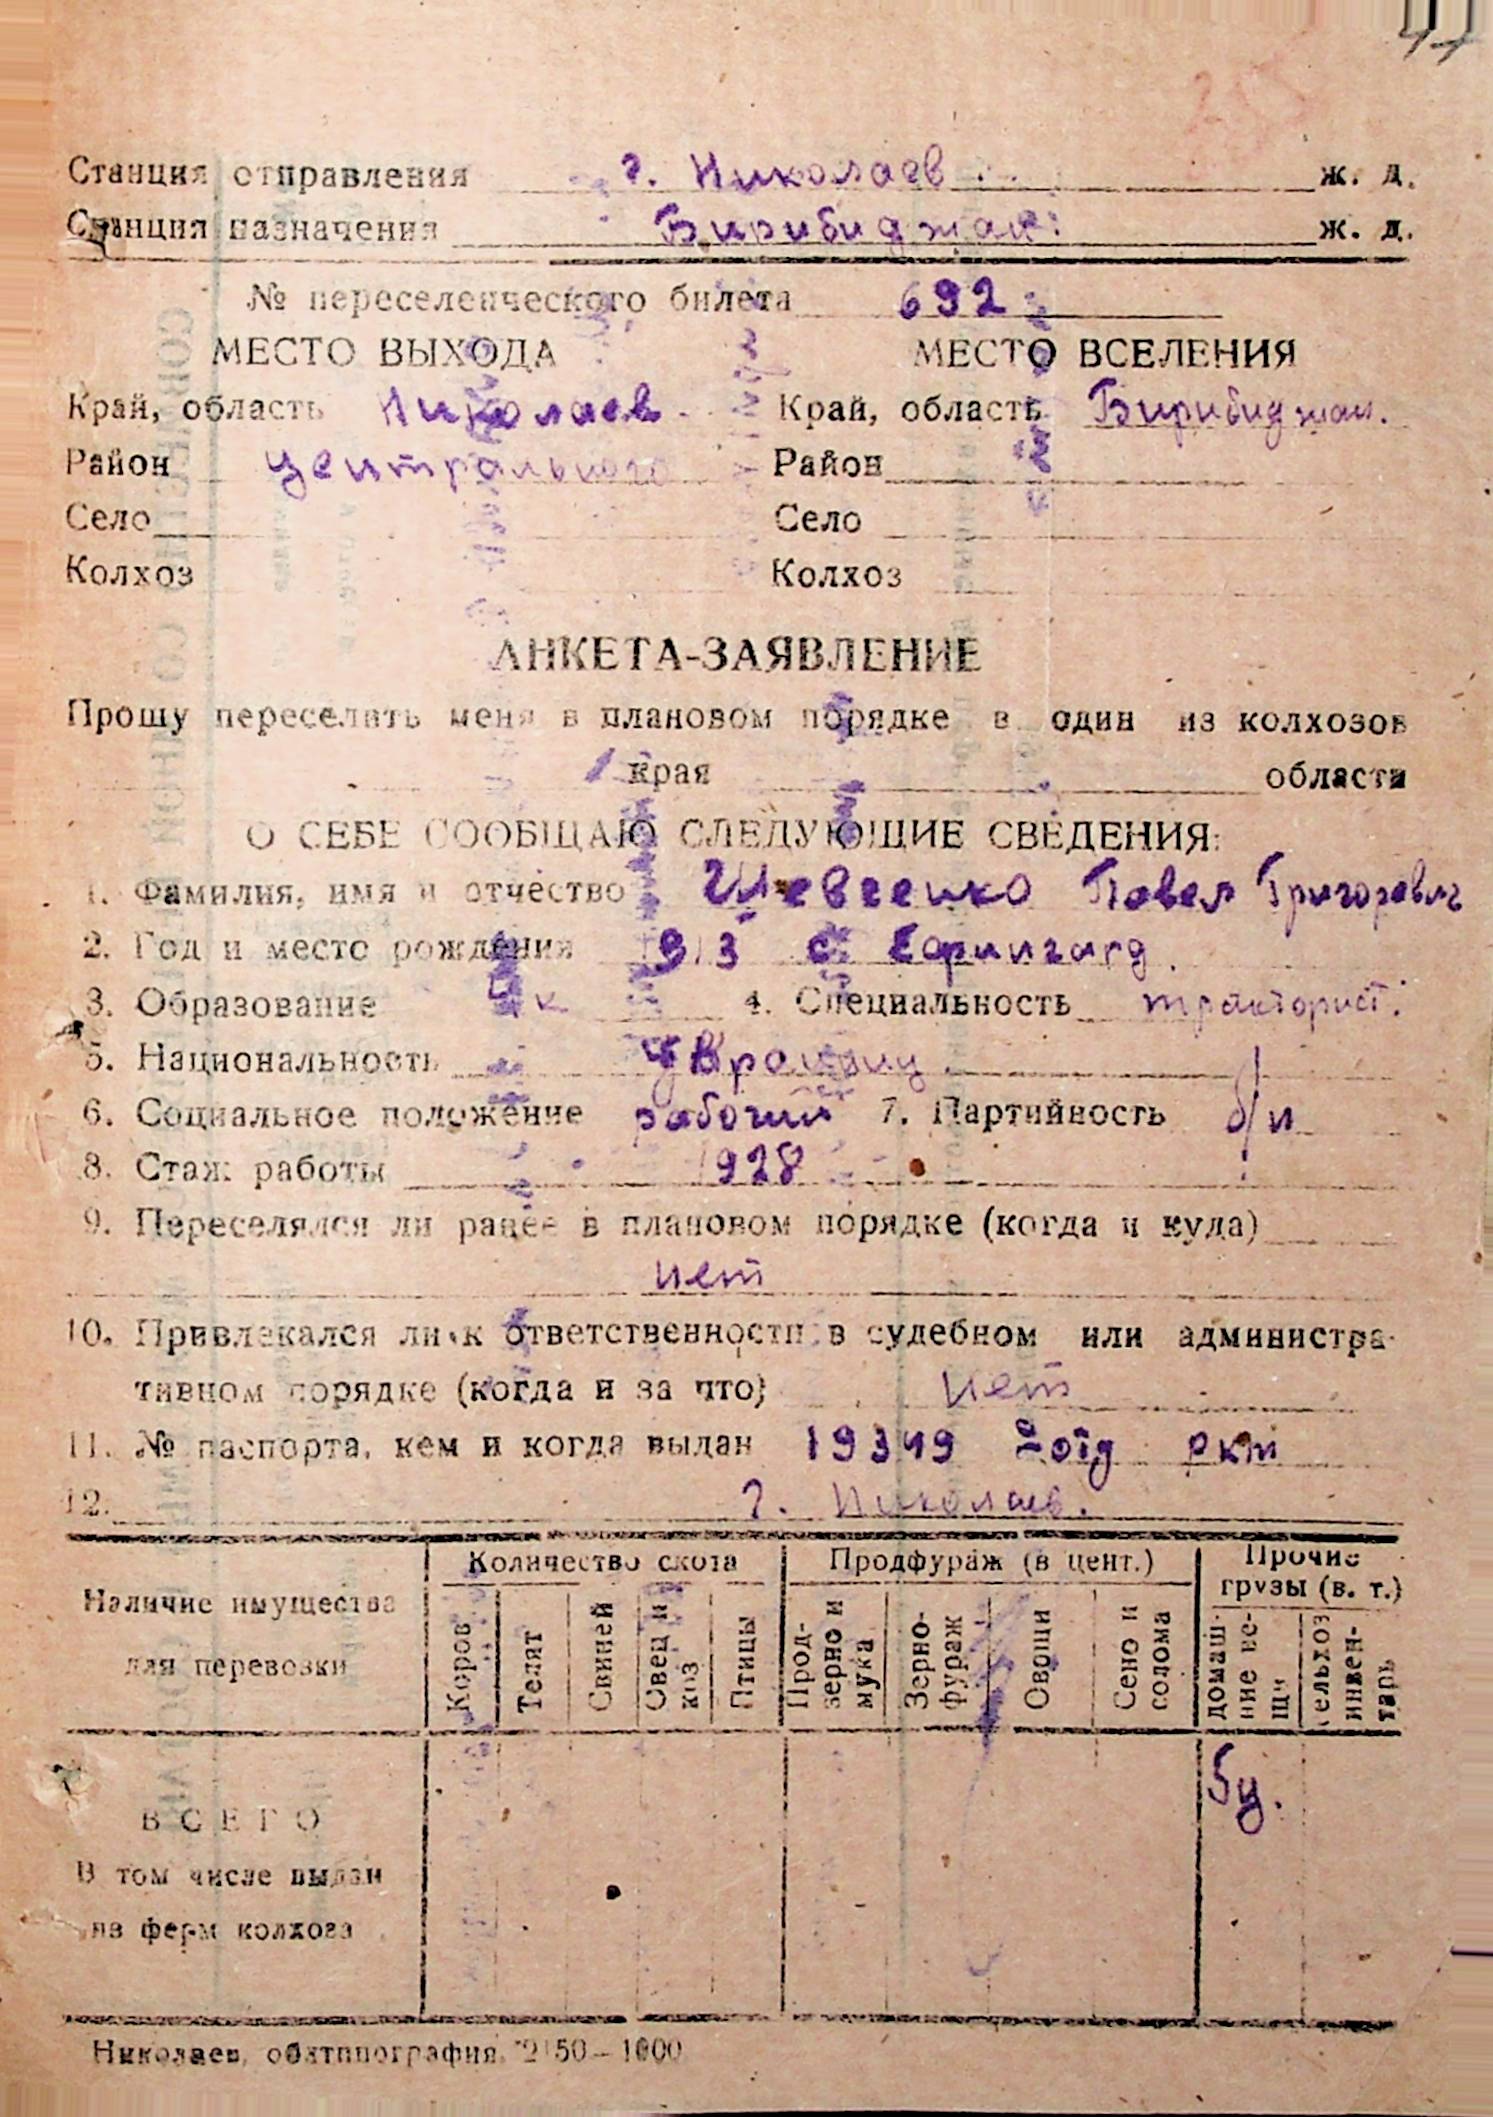 Станция отправления г. Николаев ж. д.
Станция назначения Бирибиджан ж. д.
№ переселенческого билета 692
МЕСТО ВЫХОДА МЕСТО ВСЕЛЕНИЯ
Край, область Николаев Край, область Бирибиджан.
Район центрального Район
Село Село
Колхоз Колхоз
АНКЕТА-ЗАЯВЛЕНИЕ
Прошу переселить меня в плановом порядке в один из колхозов
края области
О СЕБЕ СООБЩАЮ СЛЕДУЮЩИЕ СВЕДЕНИЯ:
1. Фамилия, имя и отчество Шевченко Павел Григоревич
2. Год и место рождения 1913 с.
3. Образование 4 к 4. Специальность тракторист.
5. Национальность украинец
6. Социальное положение рабочий 7. Партийность б/п
8. Стаж работы 1928
9. Переселялся ли ранее в плановом порядке (когда и куда)
нет
10. Привлекался ли к ответственности в судебном или администра-
тивном порядке (когда и за что) нет
11. № паспорта, кем и когда выдан 19349 2 отд ркм
12. г. Николаев.
Наличие имущества для перевозки
Количество скота Продфураж (в цент.) Прочие грузы (в. т.)
Коров Телят Свиней Овец и коз Птицы Прод-зерно и мука Зерно-фураж Овощи Сено и солома домаш-ние ве-щи сельхоз инвен-тарь
ВСЕГО 5ц.
В том числе выдан
на ферм колхоза
Николаев, облтипография, 2150—1000